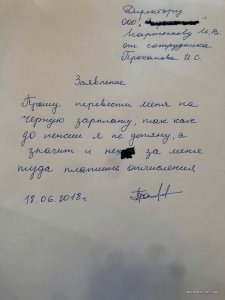 Директору
ООО
Мартыненкову М.В.
от сотрудника
Проханова И.С.
Заявление
Прошу перевести меня на
Черную зарплату, так как
до пенсии я не дотяну, а
значит и нех за меня
туда платить отчисления
18.06.2018г.